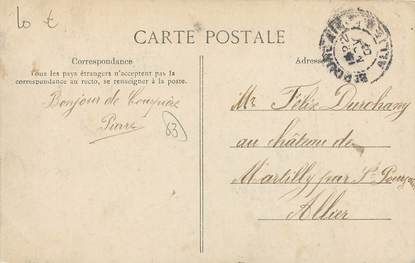 10 €
CARTE POSTALE
Correspondance
Tous les pays étrangers n'acceptent pas la
correspondance au recto, se renseigner à la poste.
Bonjour de
Pierre
63
Adresse
Mr Félix Durchany
au château de
Martilly par St Pourçain
Allier